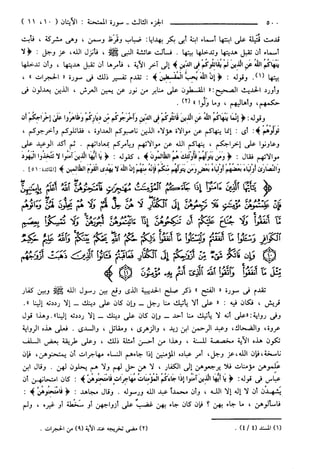 ٥٠٠ الجزء الثالث ـ سورة الممتحنة : الآيتان ( ١٠ ، ١١ )
قدمت قُتَيلة على ابنتها أسماء ابنة أبى بكر بهدايا: ضباب وقَرَظ وسمن ، وهى مشركة ، فأبت
أسماء أن تقبل هديتها وتدخلها بيتها . فسألت عائشة النبى ﷺ ، فأنزل الله، عز وجل: ﴿ لا
يَنْهَاكُمُ اللَّهُ عَنِ الَّذِينَ لَمْ يُقَاتِلُوكُمْ فِي الدِّينِ ﴾ إلى آخر الآية ، فأمرها أن تقبل هديتها ، وأن تدخلها
بيتها (١). وقوله: ﴿ إِنَّ اللَّهَ يُحِبُّ الْمُقْسِطِينَ ﴾ : تقدم تفسير ذلك فى سورة « الحجرات » ،
وأورد الحديث الصحيح: «المقسطون على منابر من نور عن يمين العرش ، الذين يعدلون فى
حكمهم، وأهاليهم ، وما وَلُوا » (٢) .
وقوله: ﴿ إِنَّمَا يَنْهَاكُمُ اللَّهُ عَنِ الَّذِينَ قَاتَلُوكُمْ فِي الدِّينِ وَأَخْرَجُوكُم مِّن دِيَارِكُمْ وَظَاهَرُوا عَلَىٰ إِخْرَاجِكُمْ أَن
تَوَلَّوْهُمْ ﴾ : أى : إنما ينهاكم عن موالاة هؤلاء الذين ناصبوكم العداوة ، فقاتلوكم وأخرجوكم ،
وعاونوا على إخراجكم ، ينهاكم الله عن موالاتهم ويأمركم بمعاداتهم . ثم أكد الوعيد على
موالاتهم فقال : ﴿ وَمَن يَتَوَلَّهُمْ فَأُولَٰئِكَ هُمُ الظَّالِمُونَ ﴾ ، كقوله : ﴿ يَا أَيُّهَا الَّذِينَ آمَنُوا لا تَتَّخِذُوا الْيَهُودَ
وَالنَّصَارَىٰ أَوْلِيَاءَ بَعْضُهُمْ أَوْلِيَاءُ بَعْضٍ وَمَن يَتَوَلَّهُم مِّنكُمْ فَإِنَّهُ مِنْهُمْ إِنَّ اللَّهَ لا يَهْدِي الْقَوْمَ الظَّالِمِينَ ﴾ [المائدة: ٥١] .
يَا أَيُّهَا الَّذِينَ آمَنُوا إِذَا جَاءَكُمُ الْمُؤْمِنَاتُ مُهَاجِرَاتٍ فَامْتَحِنُوهُنَّ اللَّهُ أَعْلَمُ بِإِيمَانِهِنَّ فَإِنْ
عَلِمْتُمُوهُنَّ مُؤْمِنَاتٍ فَلَا تَرْجِعُوهُنَّ إِلَى الْكُفَّارِ لَا هُنَّ حِلٌّ لَّهُمْ وَلَا هُمْ يَحِلُّونَ لَهُنَّ وَآتُوهُم
مَّا أَنفَقُوا وَلَا جُنَاحَ عَلَيْكُمْ أَن تَنكِحُوهُنَّ إِذَا آتَيْتُمُوهُنَّ أُجُورَهُنَّ وَلَا تُمْسِكُوا بِعِصَمِ الْكَوَافِرِ
وَاسْأَلُوا مَا أَنفَقْتُمْ وَلْيَسْأَلُوا مَا أَنفَقُوا ذَٰلِكُمْ حُكْمُ اللَّهِ يَحْكُمُ بَيْنَكُمْ وَاللَّهُ عَلِيمٌ حَكِيمٌ
(١٠) وَإِن فَاتَكُمْ شَيْءٌ مِّنْ أَزْوَاجِكُمْ إِلَى الْكُفَّارِ فَعَاقَبْتُمْ فَآتُوا الَّذِينَ ذَهَبَتْ أَزْوَاجُهُم
مِّثْلَ مَا أَنفَقُوا وَاتَّقُوا اللَّهَ الَّذِي أَنتُم بِهِ مُؤْمِنُونَ (١١)
تقدم فى سورة « الفتح » ذكر صلح الحديبية الذى وقع بين رسول الله ﷺ وبين كفار
قريش ، فكان فيه : « على ألا يأتيك منا رجل ــ وإن كان على دينك ــ إلا رددته إلينا ».
وفى رواية: «على أنه لا يأتيك منا أحد ــ وإن كان على دينك ــ إلا رددته إلينا». وهذا قول
عروة، والضحاك، وعبد الرحمن ابن زيد ، والزهرى ، ومقاتل ، والسدى . فعلى هذه الرواية
تكون هذه الآية مخصصة للسنة ، وهذا من أحسن أمثلة ذلك ، وعلى طريقة بعض السلف
ناسخة، فإن الله،عز وجل، أمر عباده المؤمنين إذا جاءهم النساء مهاجرات أن يمتحنوهن، فإن
علموهن مؤمنات فلا يرجعوهن إلى الكفار ، لا هن حل لهم ولا هم يحلون لهن . وقال ابن
عباس فى قوله: ﴿ يَا أَيُّهَا الَّذِينَ آمَنُوا إِذَا جَاءَكُمُ الْمُؤْمِنَاتُ مُهَاجِرَاتٍ فَامْتَحِنُوهُنَّ ﴾ : كان امتحانهن أن
يشهدن أن لا إله إلا الله ، وأن محمداً عبد الله ورسوله . وقال مجاهد : ﴿ فَامْتَحِنُوهُنَّ ﴾ :
فاسألوهن ، ما جاء بهن ؟ فإن كان جاء بهن غضب على أزواجهن أو سَخْطة أو غيره ، ولم
(١) المسند (٤ / ٤) . (٢) مضى تخريجه عند الآية (٩) من الحجرات .